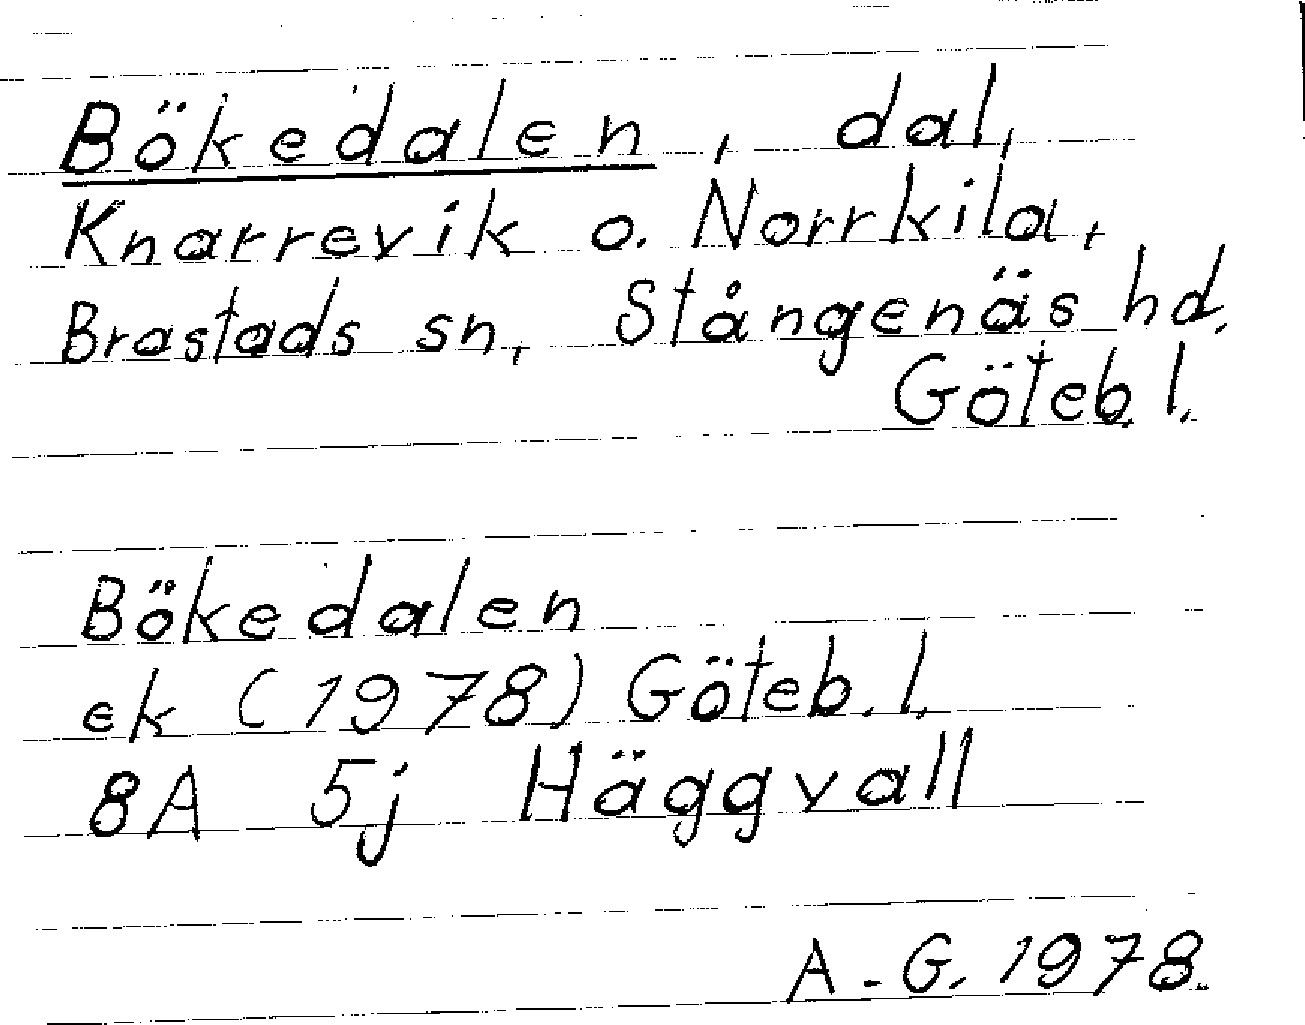 Bökedalen, dal,
Knarrevik o. Norrkila,
Brastads sn, Stångenäs hd,
Göteb. l.
Bökedalen
ek (1978) Göteb. l.
8A 5j Häggvall
A-G. 1978.